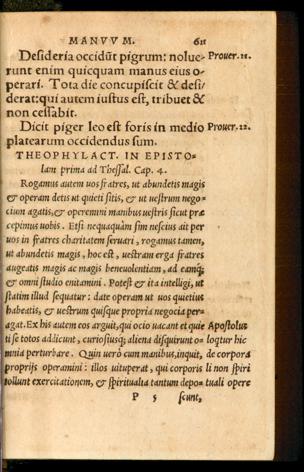 MANVVM. 611
Desideria occidūt pigrum: nolue- Prouer. 21.
runt enim quicquam manus eius o-
perari. Tota die concupiscit & desi-
derat: qui autem iustus est, tribuet &
non cessabit.
Dicit piger leo est foris in medio Prouer. 22.
platearum occidendus sum.
THEOPHYLACT. IN EPISTO-
lam prima ad Thessal. Cap. 4.
Rogamus autem uos fratres, ut abundetis magis
& operam detis ut quieti sitis, & ut uestrum nego-
cium agatis, & operemini manibus uestris sicut præ
cepimus uobis. Etsi nequaquàm sim nescius ait per
uos in fratres charitatem seruari, rogamus tamen,
ut abundetis magis, hoc est, uestram erga fratres
augeatis magis ac magis beneuolentiam, ad eamq́;
& omni studio enitamini. Potest & ita intelligi, ut
statim illud sequatur: date operam ut uos quietius
habeatis, & uestrum quisque propria negocia per-
agat. Ex his autem eos arguit, qui ocio uacant et quie Apostolus
ti se totos addicunt, curiosiusq; aliena disquirunt o- loqutur hic
mnia perturbare. Quin uerò cum manibus, inquit, de corpora
proprijs operamini: illos uituperat, qui corporis li non spiri
tollunt exercitationem, & spiritualia tantum depo- tuali opere
P 5 scunt,